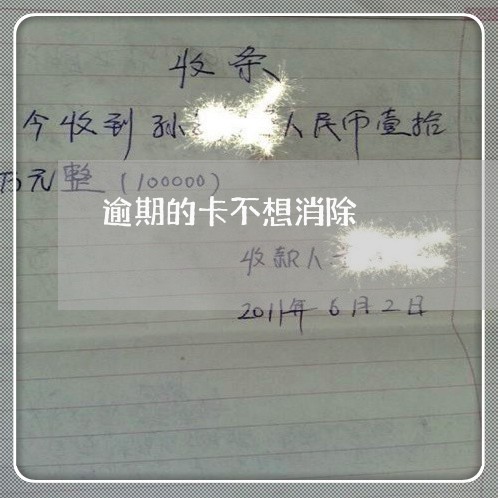 收条
今收到孙 人民币壹拾
万元整(100000)
逾期的卡不想消除
收款人
2011年6月2日